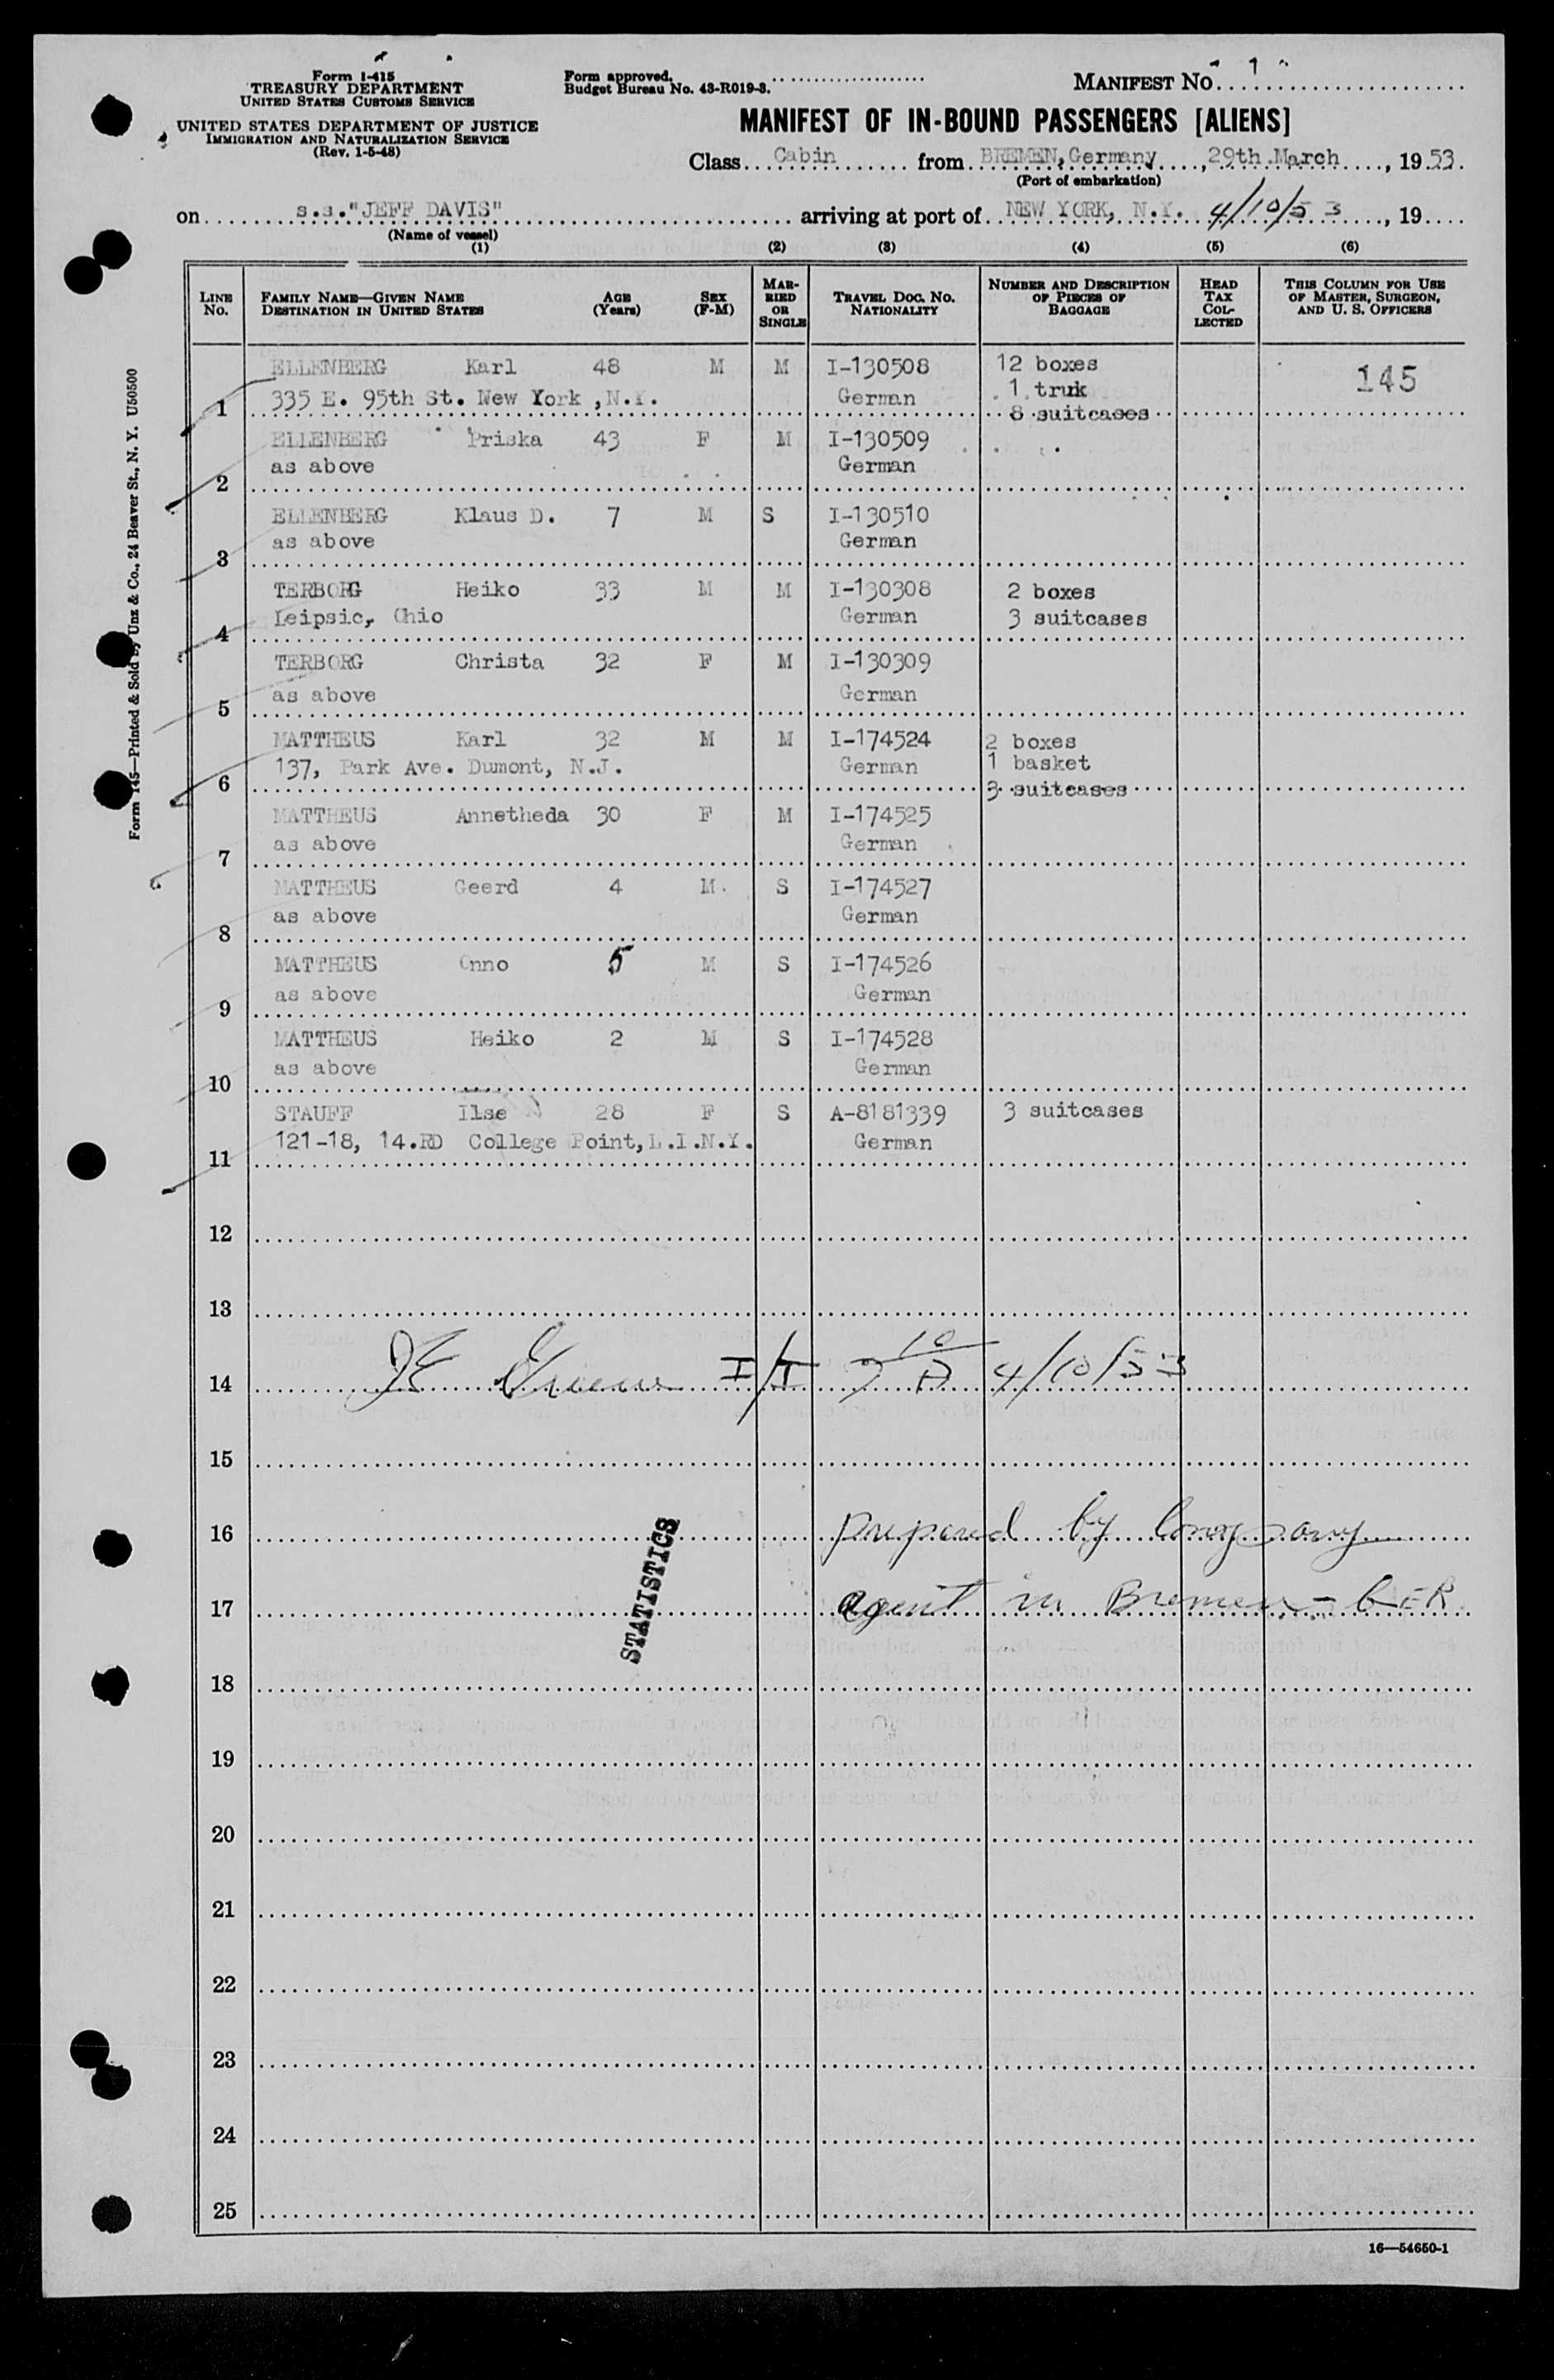 Form I-415
TREASURY DEPARTMENT
UNITED STATES CUSTOMS SERVICE
UNITED STATES DEPARTMENT OF JUSTICE
IMMIGRATION AND NATURALIZATION SERVICE
(Rev. 1-5-48)
Form approved.
Budget Bureau No. 43-R019-3.
MANIFEST No. 1
MANIFEST OF IN-BOUND PASSENGERS [ALIENS]
Class Cabin from BREMEN, Germany, 29th March, 1953.
(Port of embarkation)
on s.s."JEFF DAVIS" arriving at port of NEW YORK, N.Y. 4/10/53, 19
(Name of vessel)
(1) (2) (3) (4) (5) (6)
LINE No. FAMILY NAME—GIVEN NAME DESTINATION IN UNITED STATES AGE (Years) SEX (F-M) MARRIED OR SINGLE TRAVEL DOC. NO. NATIONALITY NUMBER AND DESCRIPTION OF PIECES OF BAGGAGE HEAD TAX COLLECTED THIS COLUMN FOR USE OF MASTER, SURGEON, AND U. S. OFFICERS
ELLENBERG Karl 48 M M I-130508 12 boxes 145
1 335 E. 95th St. New York, N.Y. German 1 truk
8 suitcases
ELLENBERG Priska 43 F M I-130509
2 as above German
ELLENBERG Klaus D. 7 M S I-130510
3 as above German
TERBORG Heiko 33 M M I-130308 2 boxes
4 Leipsic, Ohio German 3 suitcases
TERBORG Christa 32 F M I-130309
5 as above German
MATTHEUS Karl 32 M M I-174524 2 boxes
6 137, Park Ave. Dumont, N.J. German 1 basket
3 suitcases
MATTHEUS Annetheda 30 F M I-174525
7 as above German
MATTHEUS Geerd 4 M S I-174527
8 as above German
MATTHEUS Onno 5 M S I-174526
9 as above German
MATTHEUS Heiko 2 M S I-174528
10 as above German
STAUFF Ilse 28 F S A-8181339 3 suitcases
11 121-18, 14.RD College Point, L.I.N.Y. German
12
13
14 Greene I/I 4/10/53
15
16 prepared by company
17 agent in Bremen - GER
STATISTICS
18
19
20
21
22
23
24
25
16—54650-1
Form 145—Printed & Sold by Unz & Co., 24 Beaver St., N. Y. U50500